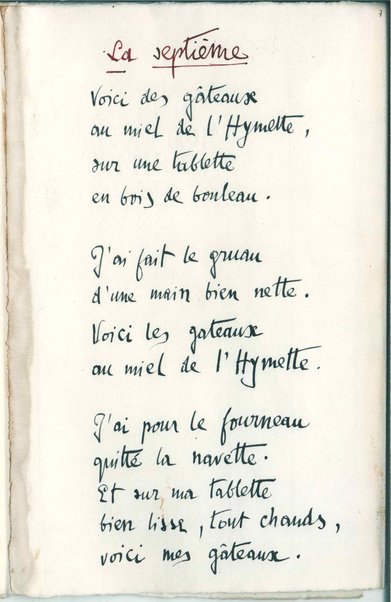 La septième
Voici des gâteaux
au miel de l'Hymette,
sur une tablette
en bois de bouleau.
J'ai fait le gruau
d'une main bien nette.
Voici les gateaux
au miel de l'Hymette.
J'ai pour le fourneau
quitté la navette.
Et sur ma tablette
bien lisse, tout chauds,
voici mes gâteaux.